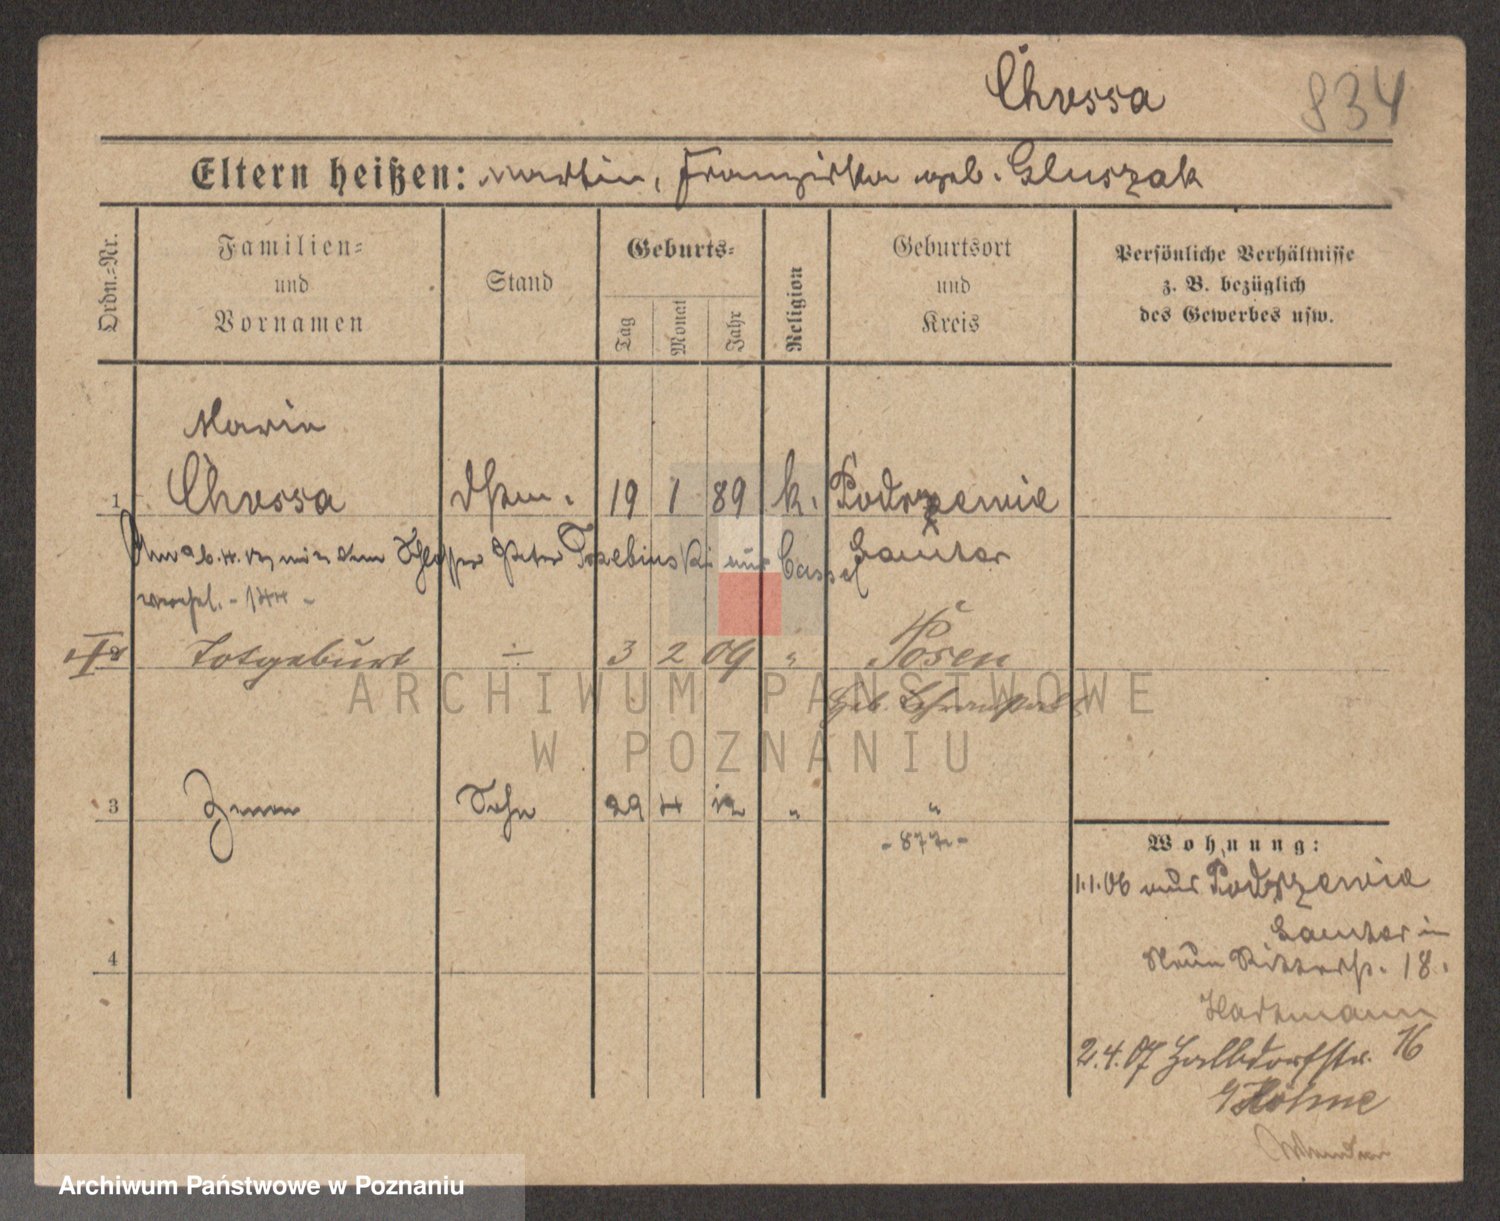 Chrossa 834
Eltern heißen: Martin, Franziska geb. Gluszak
Ordn.=Nr.
Familien=
und
Vornamen
Stand
Geburts=
Tag
Monat
Jahr
Religion
Geburtsort
und
Kreis
Persönliche Verhältnisse
z. B. bezüglich
des Gewerbes usw.
Maria
1 Chrossa 19 1 89 k. Podrzewie
Am mit dem Schlosser Peter aus Cassel
Samter
verehel. - 144 -
Totgeburt ÷ 3 2 09 " Posen
Geb.
3 Sohn 29 4 12 " "
- 877 -
4
Wohnung:
1.1.06 aus Podrzewie
Samter in
18.
Hartmann
2.4.07 Halbdorfstr. 16
Höhne
ARCHIWUM PAŃSTWOWE
W POZNANIU
Archiwum Państwowe w Poznaniu